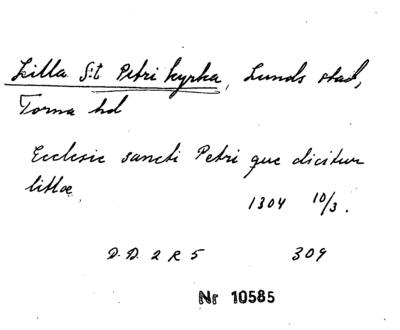 Lilla S:t Petri kyrka, Lunds stad,
Torna hd
Ecclesie sancti Petri que dicitur
litlæ
1304 10/3.
D.D. 2 R 5 309
Nr 10585